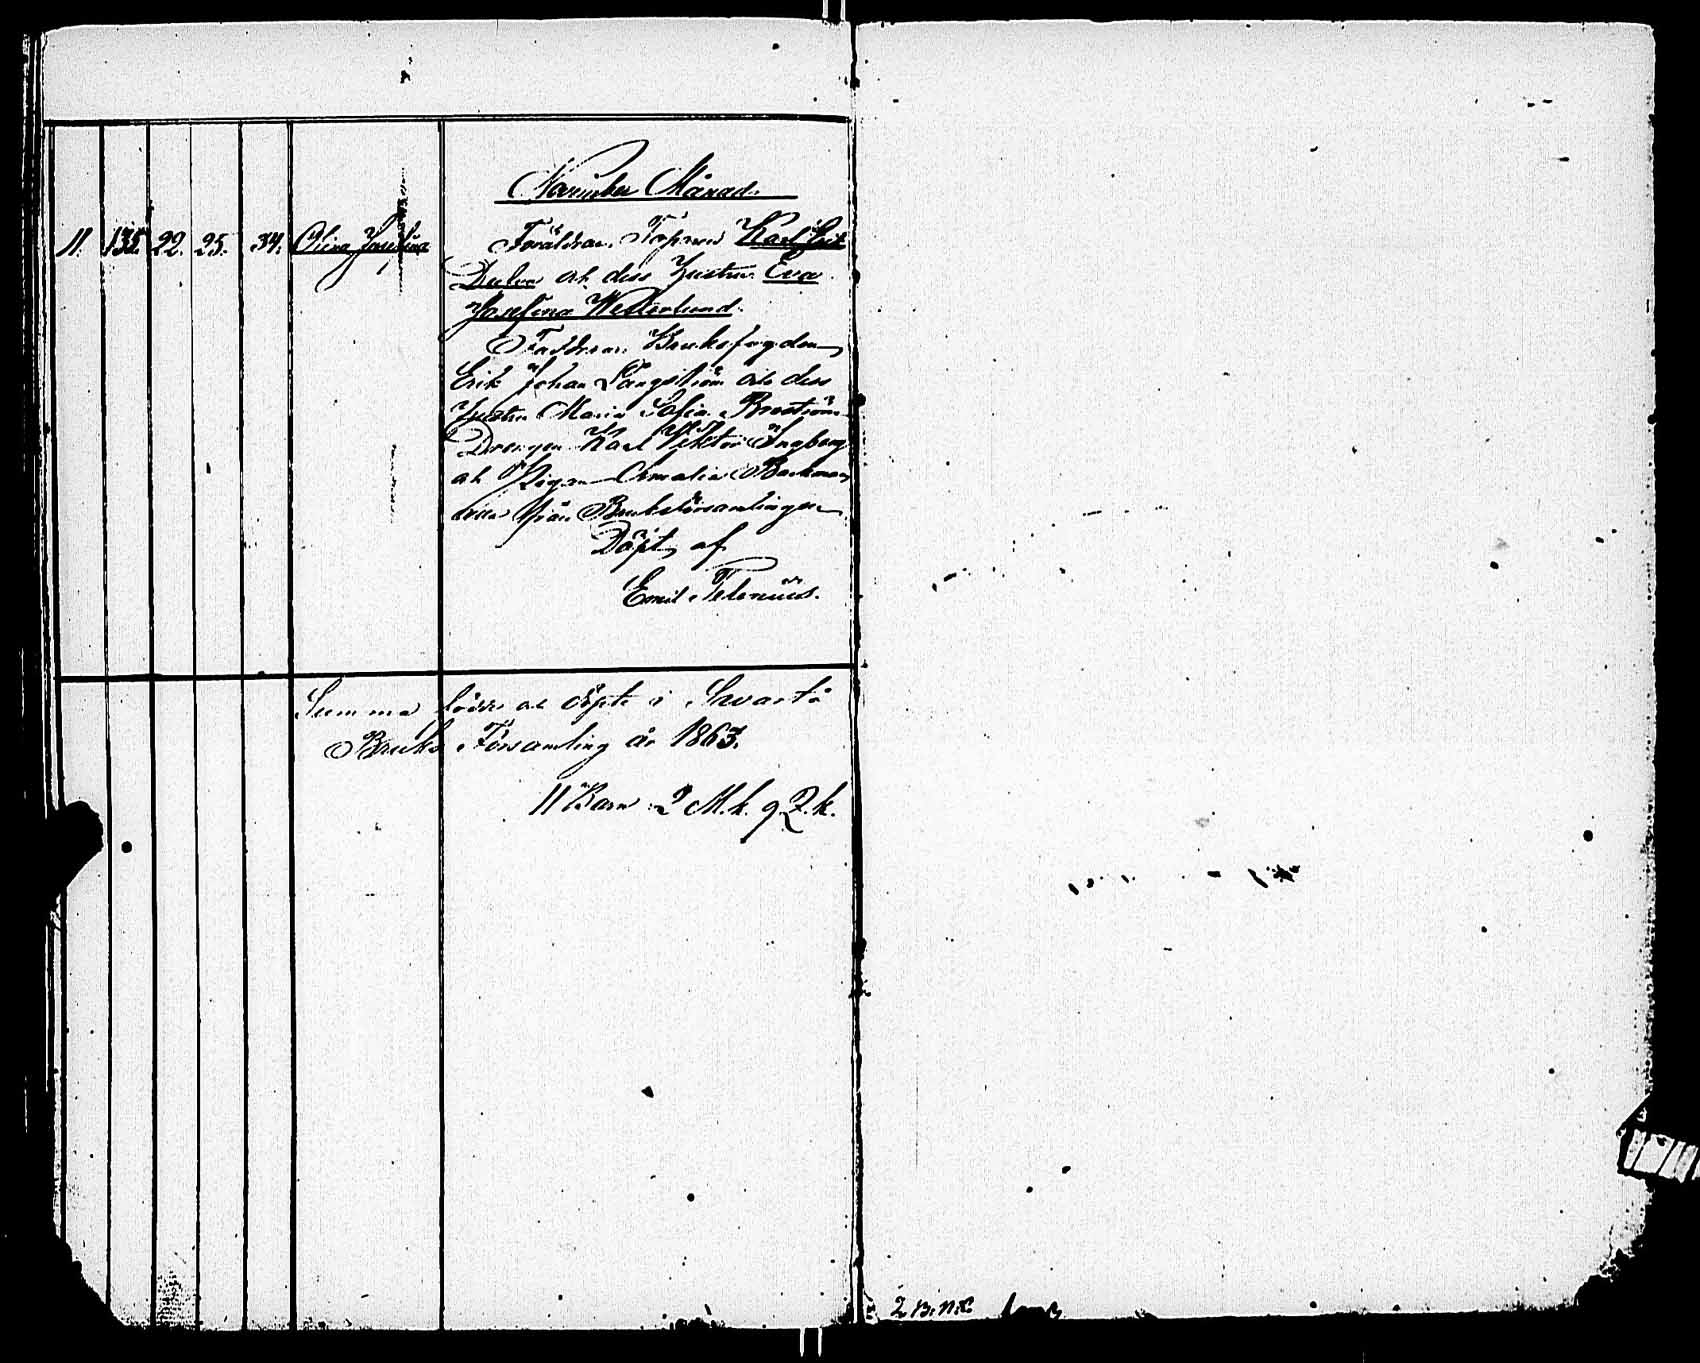 November Månad.
11. 135. 22. 25. 34. Olina Josefina Föräldrar: Karl Erik
och dess hustru Eva
Josefina Westerlund.
Faddrar: Bruksfogden
Erik Johan Långström och dess
hustru Maria Sofia Broström
Drengen Karl Viktor Engberg
och Pigan Amalia Backman
från Bruksförsamlingen.
Döpt af
Emil Telenius.
Summa födde och döpte i Svartå
Bruks Församling år 1863.
11 Barn 2 M.k. 9 Q.k.